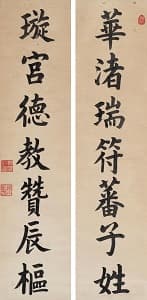 華渚瑞符蕃子姓
璇宮德教贊辰樞